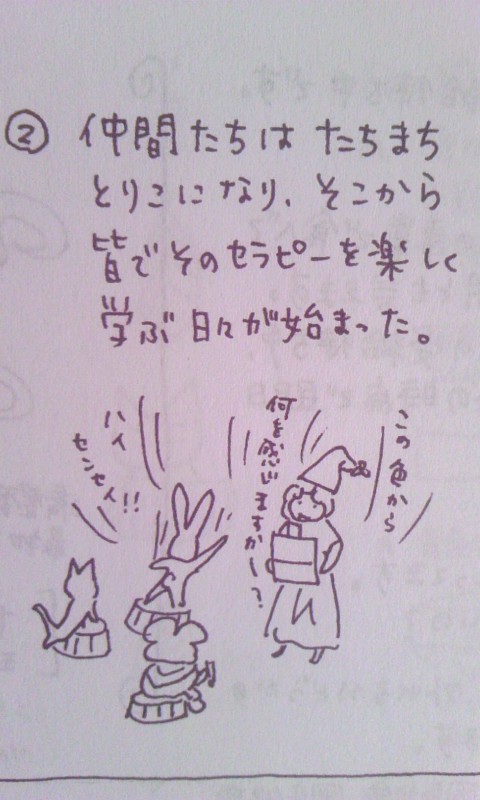 ② 仲間たちは たちまち
とりこになり、そこから
皆でそのセラピーを楽しく
学ぶ日々が始まった。
この色から
何を感じますかー?
ハイ
センセイ!!